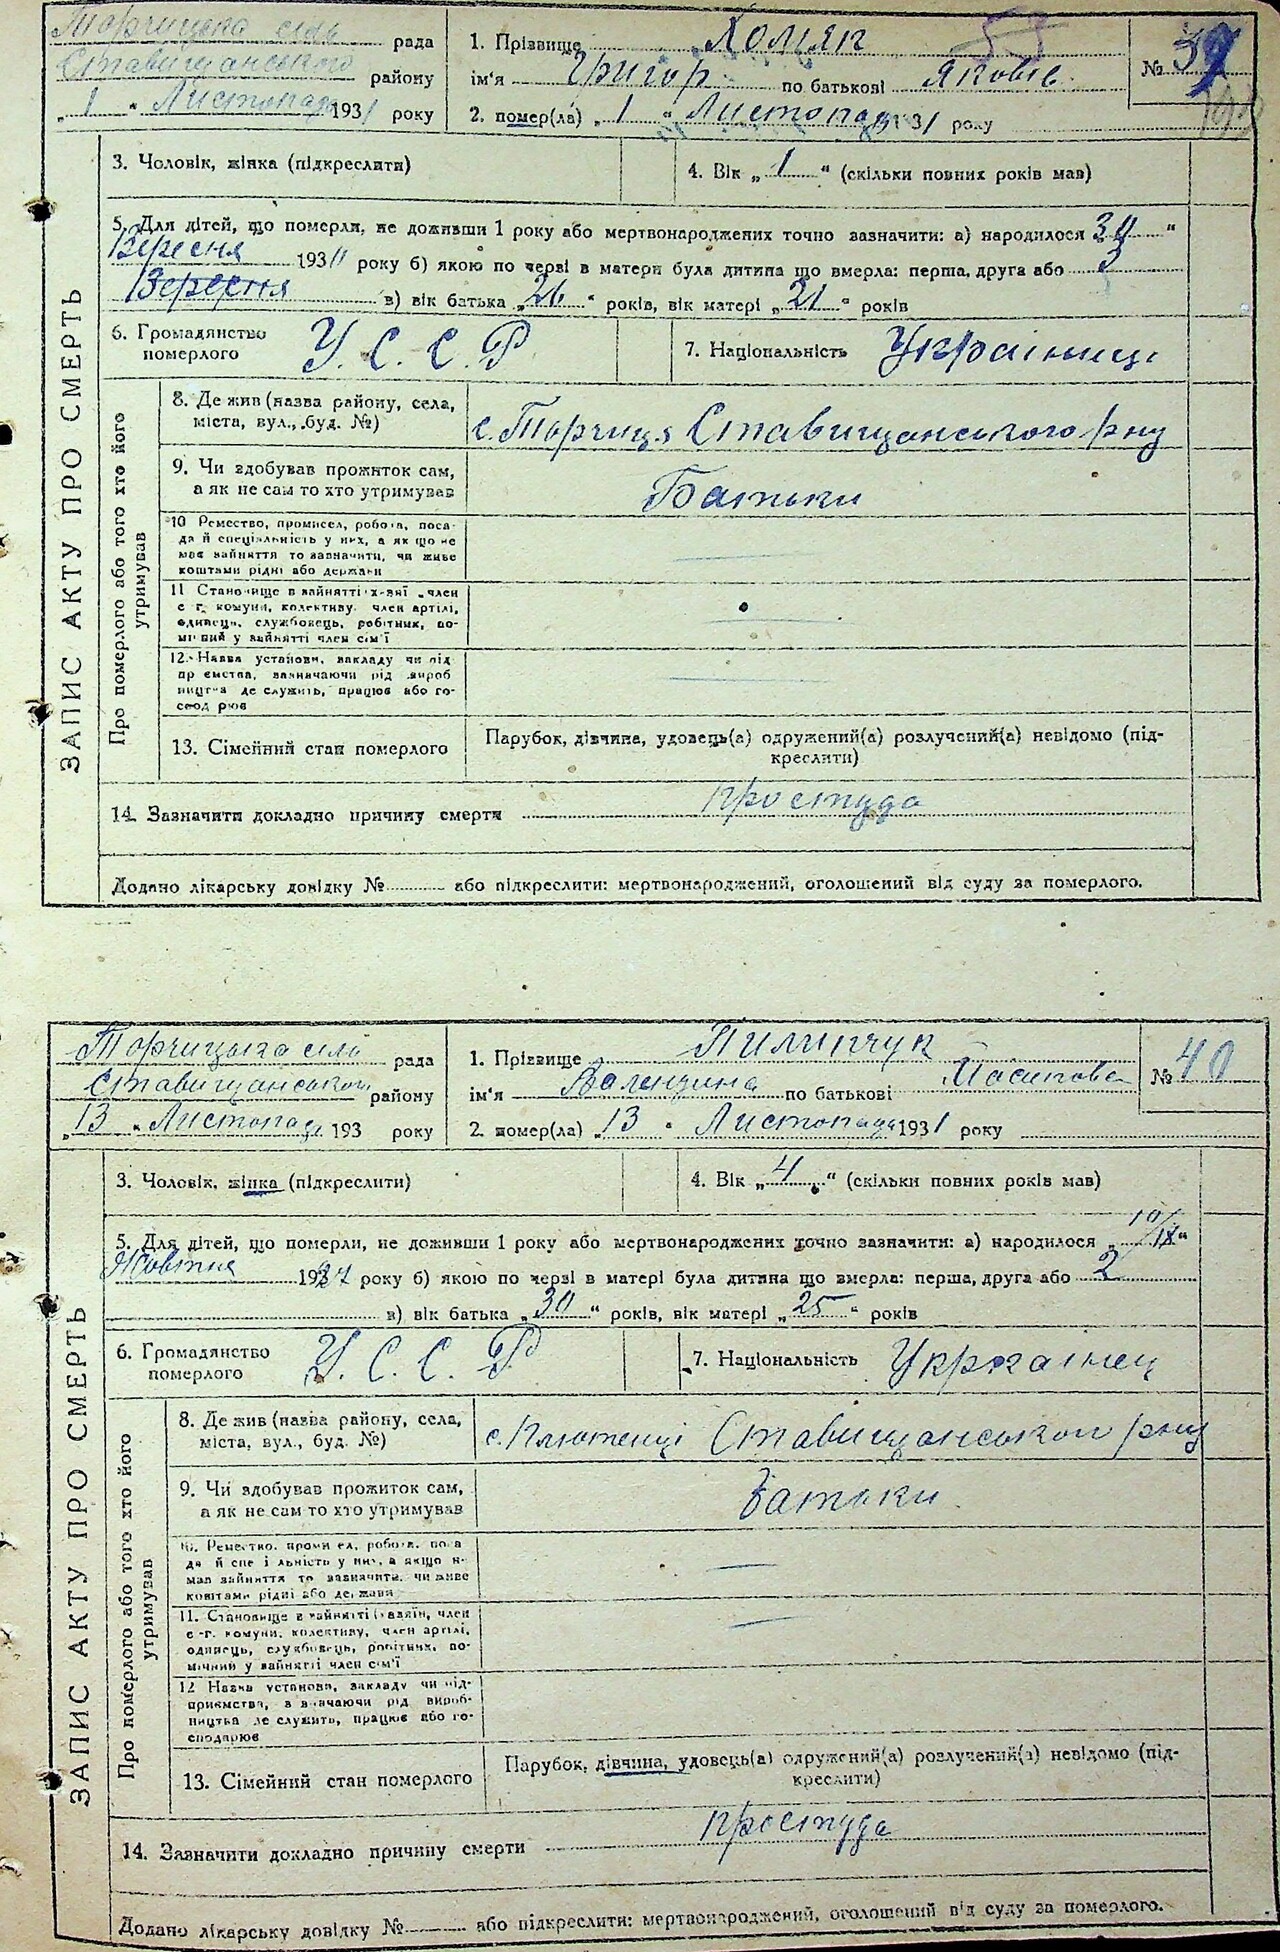 Торчицька сіль рада
Ставищанського району
„1“ Листопада 1931 року
1. Прізвище Хомяк
ім'я Григор по батькові Яковів
2. помер(ла) „1“ Листопада 1931 року
№ 39
3. Чоловік, жінка (підкреслити)
4. Вік „1“ (скільки повних років мав)
5. Для дітей, що померли, не доживши 1 року або мертвонароджених точно зазначити: а) народилося 30“
Вересня 193 року б) якою по черві в матери була дитина що вмерла: перша, друга або 3
Вересня в) вік батька „26“ років, вік матері „21“ років
6. Громадянство
померлого У. С. С. Р
7. Національність Українець
ЗАПИС АКТУ ПРО СМЕРТЬ
Про померлого або того хто його
утримував
8. Де жив (назва району, села,
міста, вул., буд. №) с. Торчиця Ставищанського рну
9. Чи здобував прожиток сам,
а як не сам то хто утримував Батьки
10 Ремество, промисел, робота, поса-
да й спеціальність у них, а як що не
мав зайняття то зазначити, чи живе
коштами рідні або держави
11 Становище в зайнятті член
с г. комуни, колективу член артілі,
одинець, службовець, робітник, по-
мічний у зайнятті член сім'ї
12. Назва установи, закладу чи під
приємства, зазначаючи рід вироб
ництва де служить, працює або го-
сподарює
13. Сімейний стан померлого
Парубок, дівчина, удовець(а) одружений(а) розлучений(а) невідомо (під-
креслити)
14. Зазначити докладно причину смерти простуда
Додано лікарську довідку № або підкреслити: мертвонароджений, оголошений від суду за померлого.
Торчицька сіль рада
Ставищанського району
„13“ Листопада 193 року
1. Прізвище Пилипчук
ім'я Валенцина по батькові Йосипова
2. помер(ла) „13“ Листопада 1931 року
№ 40
3. Чоловік, жінка (підкреслити)
4. Вік „4“ (скільки повних років мав)
10/IX
5. Для дітей, що померли, не доживши 1 року або мертвонароджених точно зазначити: а) народилося
Жовтня 1927 року б) якою по черзі в матері була дитина що вмерла: перша, друга або 2
в) вік батька „30“ років, вік матері „25“ років
6. Громадянство
померлого У. С. С. Р
7. Національність Українец
ЗАПИС АКТУ ПРО СМЕРТЬ
Про померлого або того хто його
утримував
8. Де жив (назва району, села,
міста, вул., буд. №) с. Ставищанськои рну
9. Чи здобував прожиток сам,
а як не сам то хто утримував батьки
10. Ремество, промисел, робота, поса
да й спеціальність у них, а якщо н-
мав зайняття то зазначити, чи живе
коштами рідні або держави
11. Становище в зайнятті член
с-г. комуни, колективу, член артілі,
одинець, службовець, робітник, по-
мічний у зайнятті член сім'ї
12 Назва установи, закладу чи під-
приємства, зазначаючи рід вироб-
ництва де служить, працює або го-
сподарює
13. Сімейний стан померлого
Парубок, дівчина, удовець(а) одружений(а) розлучений(а) невідомо (під-
креслити)
14. Зазначити докладно причину смерти простуда
Додано лікарську довідку № або підкреслити: мертвонароджений, оголошений від суду за померлого.